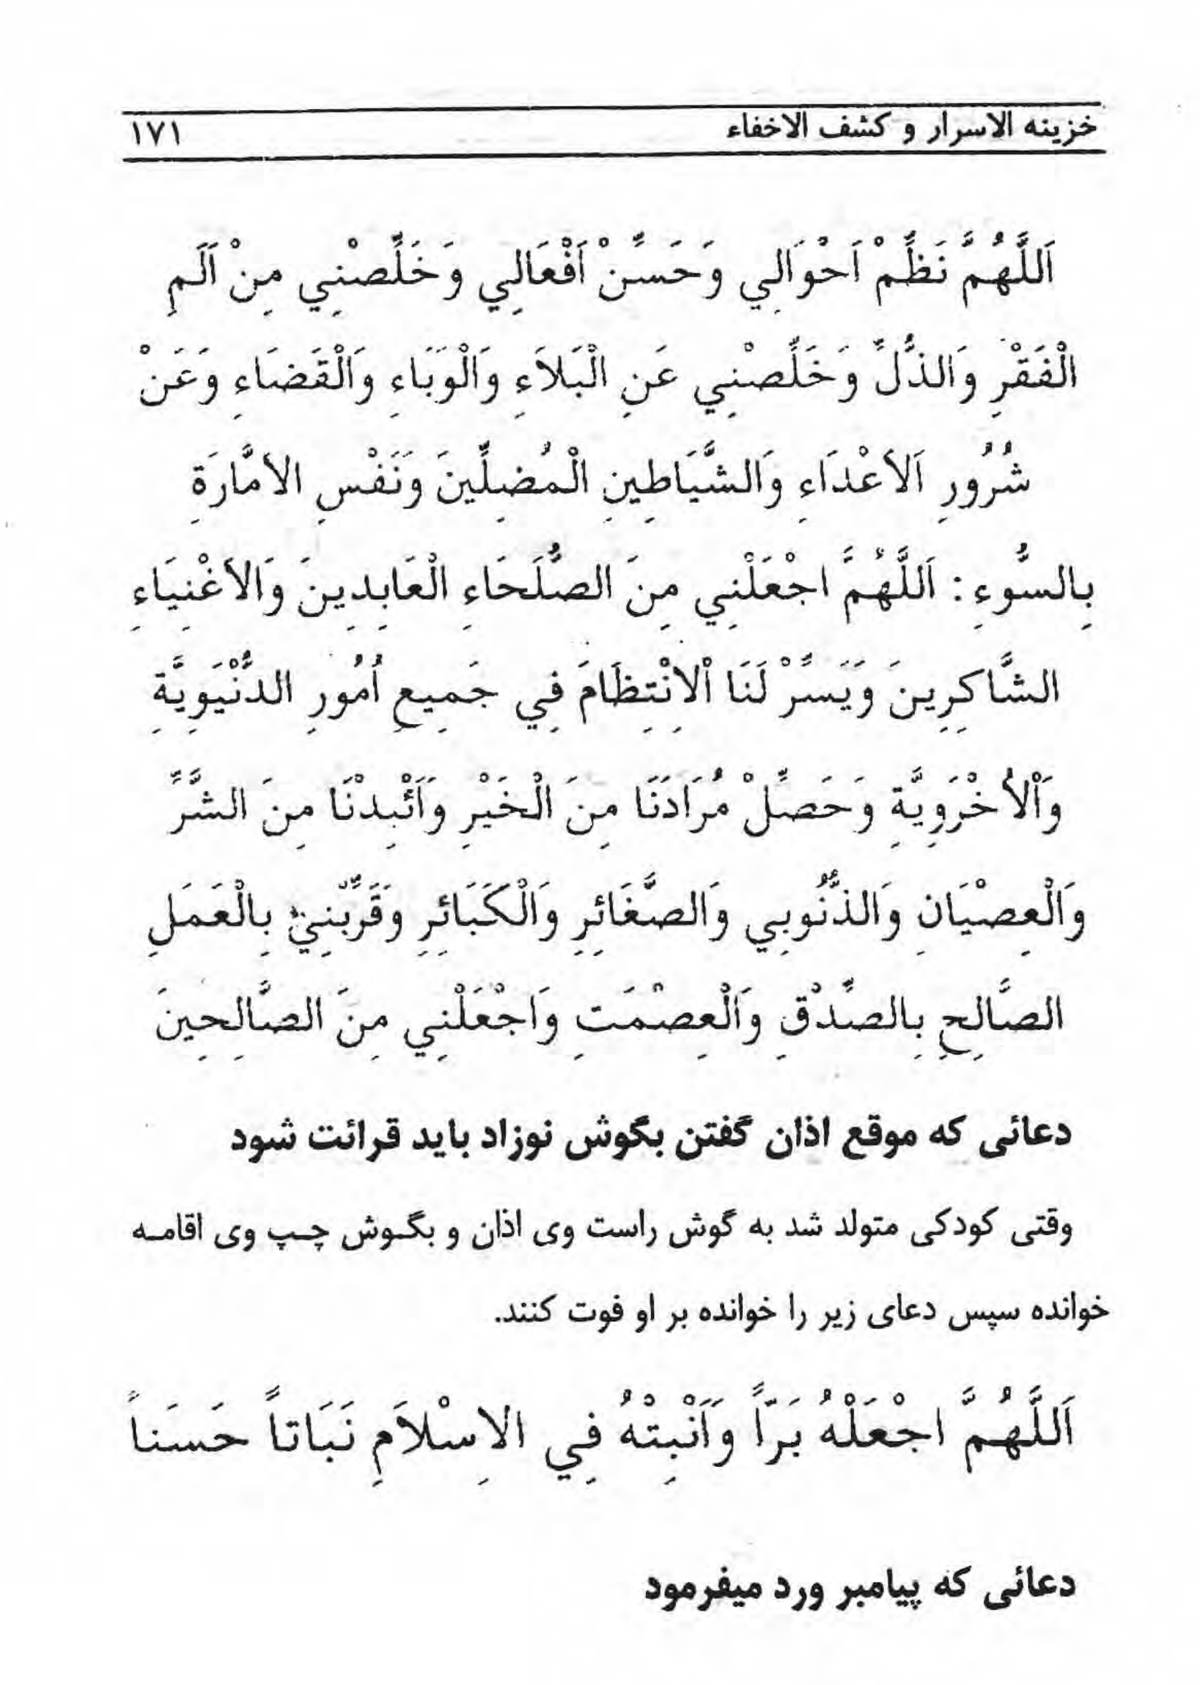 خزینه الاسرار و کشف الاخفاء ۱۷۱
اَللَّهُمَّ نَظِّمْ اَحْوَالِي وَحَسِّنْ اَفْعَالِي وَخَلِّصْنِي مِنْ اَلَمِ
الْفَقْرِ وَالذُّلِّ وَخَلِّصْنِي عَنِ الْبَلاَءِ وَالْوَبَاءِ وَالْقَضَاءِ وَعَنْ
شُرُورِ اَلاَعْدَاءِ وَالشَّيَاطِينِ الْمُضِلِّينَ وَنَفْسِ الاَمَّارَةِ
بِالسُّوءِ : اَللَّهُمَّ اجْعَلْنِي مِنَ الصُّلَحَاءِ الْعَابِدِينَ وَالاَغْنِيَاءِ
الشَّاكِرِينَ وَيَسِّرْ لَنَا اْلاِنْتِظَامَ فِي جَمِيعِ اُمُورِ الدُّنْيَوِيَّةِ
وَاْلاُخْرَوِيَّةِ وَحَصِّلْ مُرَادَنَا مِنَ الْخَيْرِ وَاَئْبِدْنَا مِنَ الشَّرِّ
وَالْعِصْيَانِ وَالذُّنُوبِي وَالصَّغَائِرِ وَالْكَبَائِرِ وَقَرِّبْنِيْ بِالْعَمَلِ
الصَّالِحِ بِالصِّدْقِ وَالْعِصْمَتِ وَاجْعَلْنِي مِنَ الصَّالِحِينَ
دعائی که موقع اذان گفتن بگوش نوزاد باید قرائت شود
وقتی کودکی متولد شد به گوش راست وی اذان و بگـوش چـپ وی اقامـه
خوانده سپس دعای زیر را خوانده بر او فوت کنند.
اَللَّهُمَّ اجْعَلْهُ بَرّاً وَاَنْبِتْهُ فِي الاِسْلاَمِ نَبَاتاً حَسَناً
دعائی که پیامبر ورد میفرمود